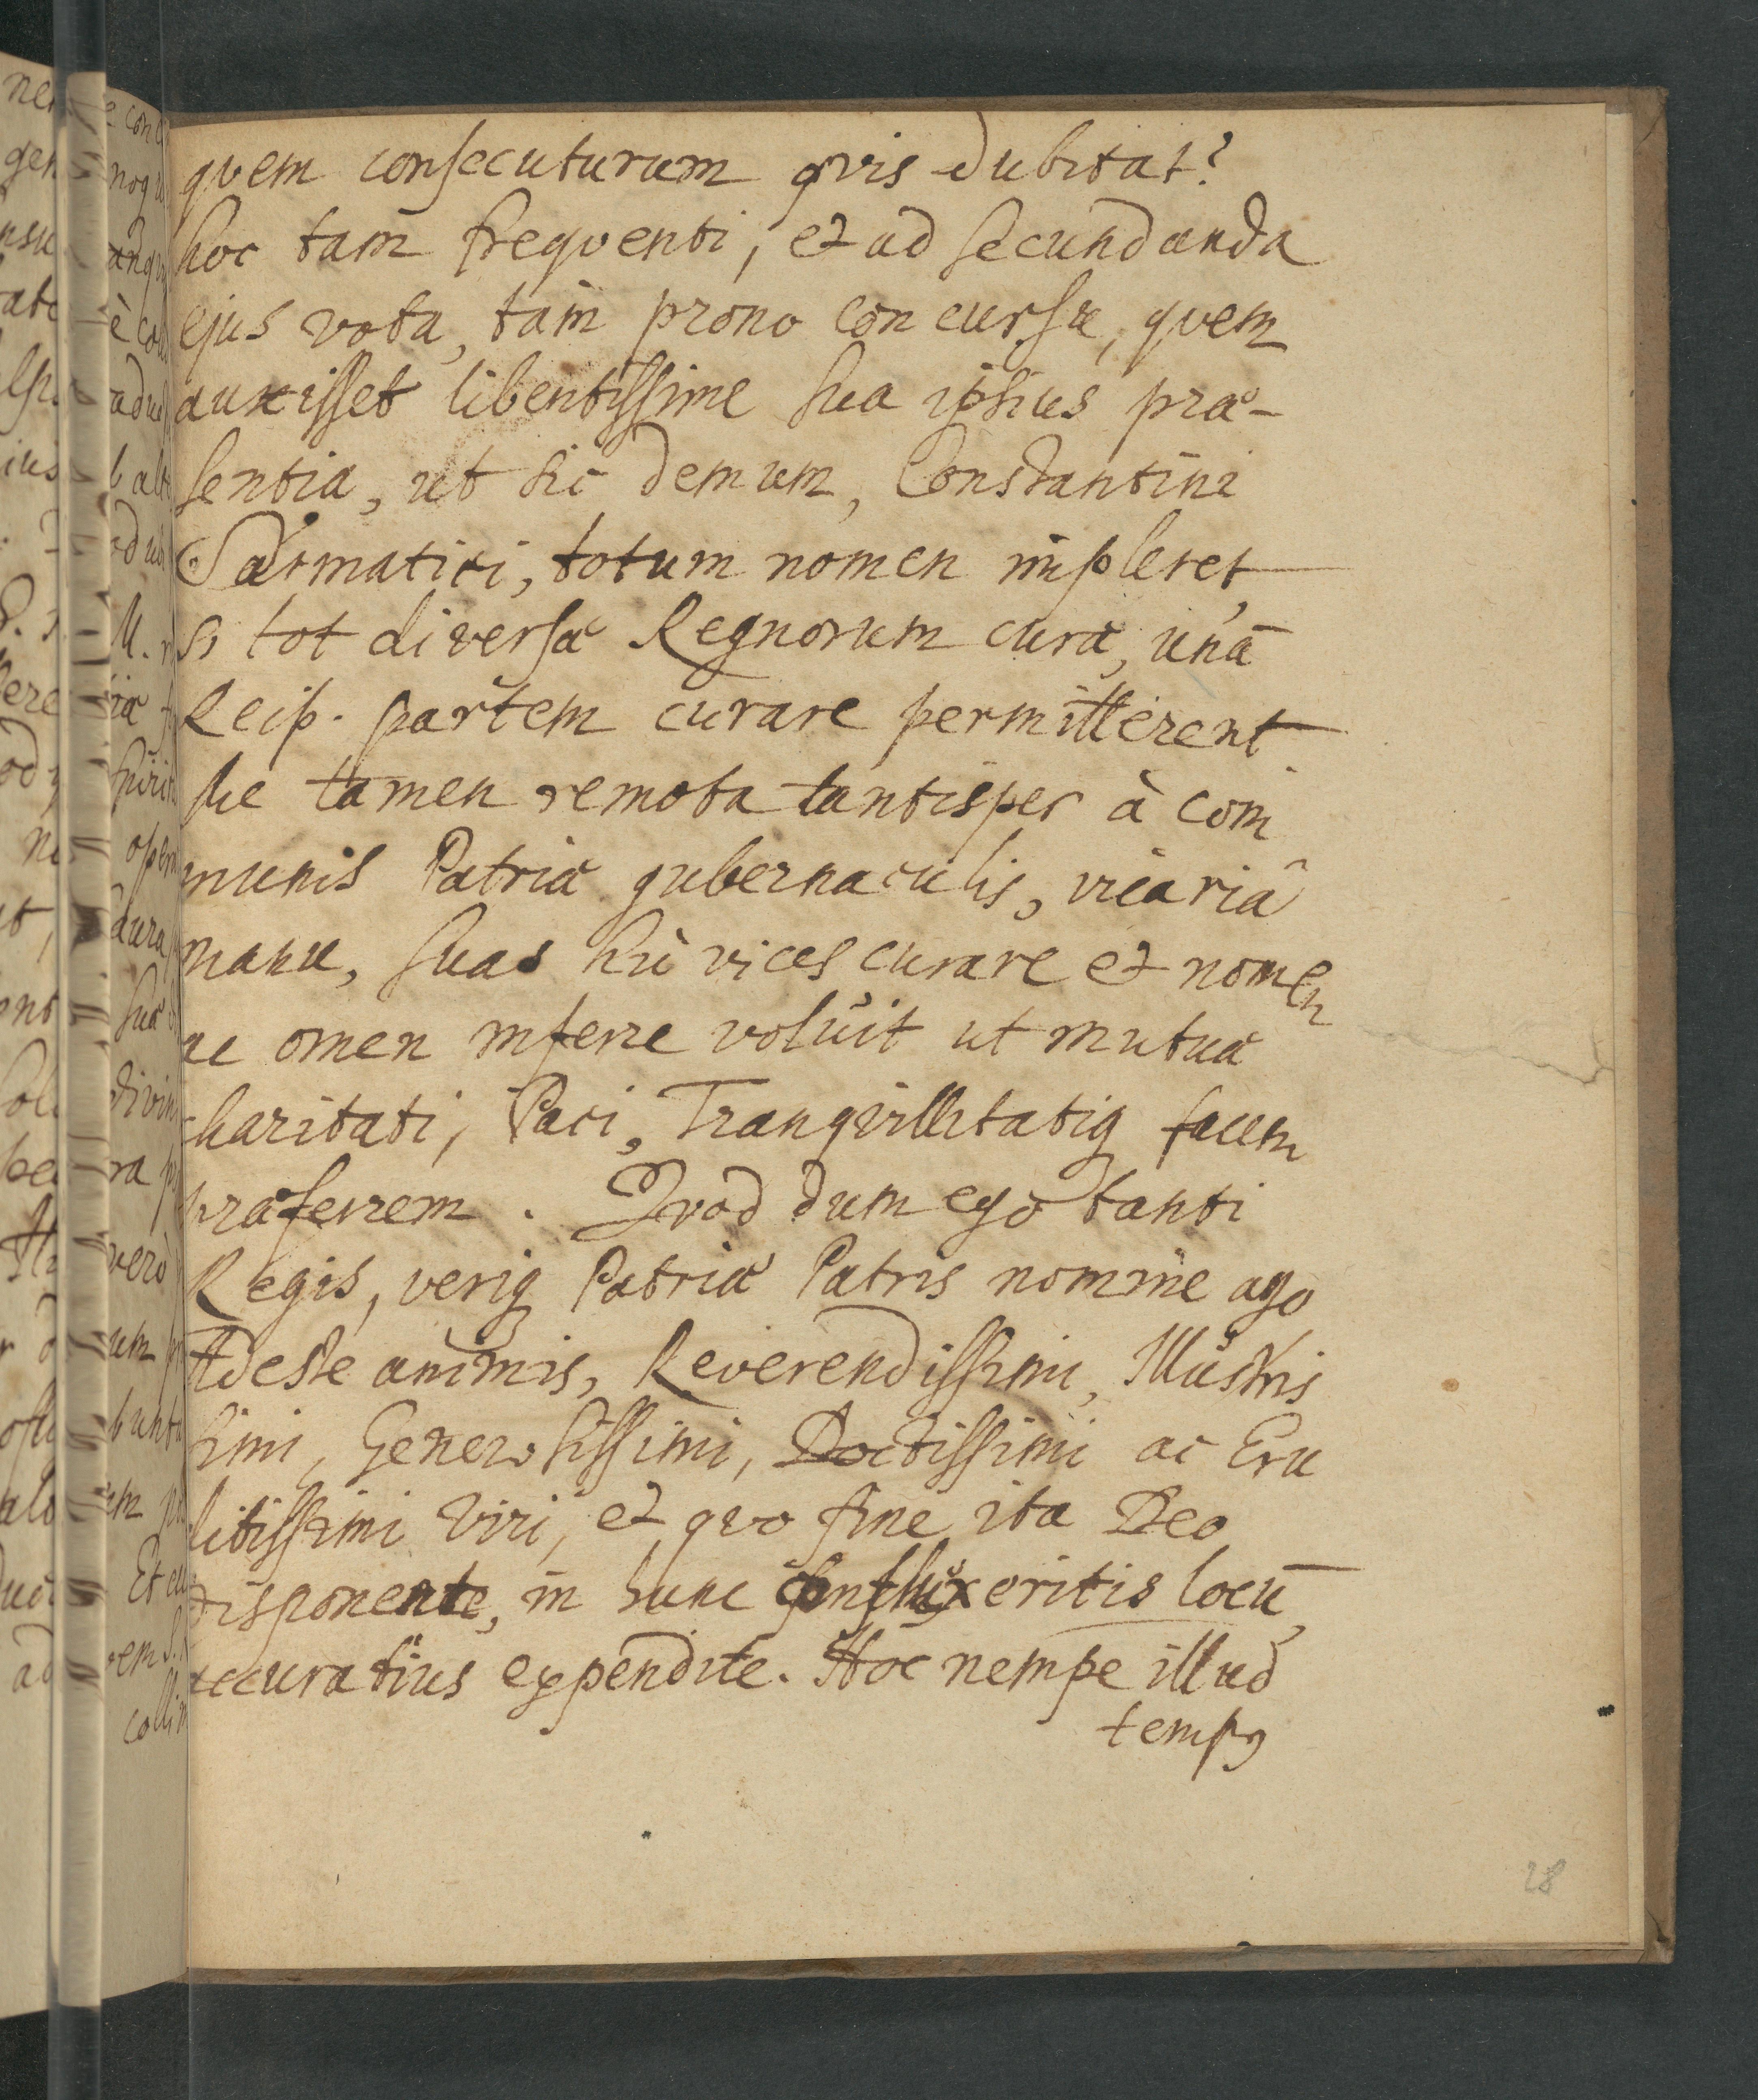 qvem consecuturum qvis dubitat?
hoc tam freqventi, et ad secundanda
ejus vota, tam prono concursu, qvem
auxisset libentissime sua ipsius præ-
sentia, ut sic demum, Constantini
Sarmatici, totum nomen impleret,
si tot diversæ Regnorum curæ, unã
Reip. partem curare permitterent
Me tamen remota tantisper à com
munis Patriæ gubernaculis, vicariâ
manu, suas hic vices curare et nomen
ac omen inferre voluit ut mutuæ
charitati, Paci, Tranqvillitatiq facem
præferrem. Qvod dum ego tanti
Regis, veriq Patriæ Patris nomine ago
Adeste animis, Reverendissimi, Illustris
simi, Generosissimi, Doctissimi ac Eru
ditissimi Viri, et qvo fine, ita Deo
disponente, in hunc confluxeritis locũ,
accuratius expendite. Hoc nempe illud
tempꝰ
28